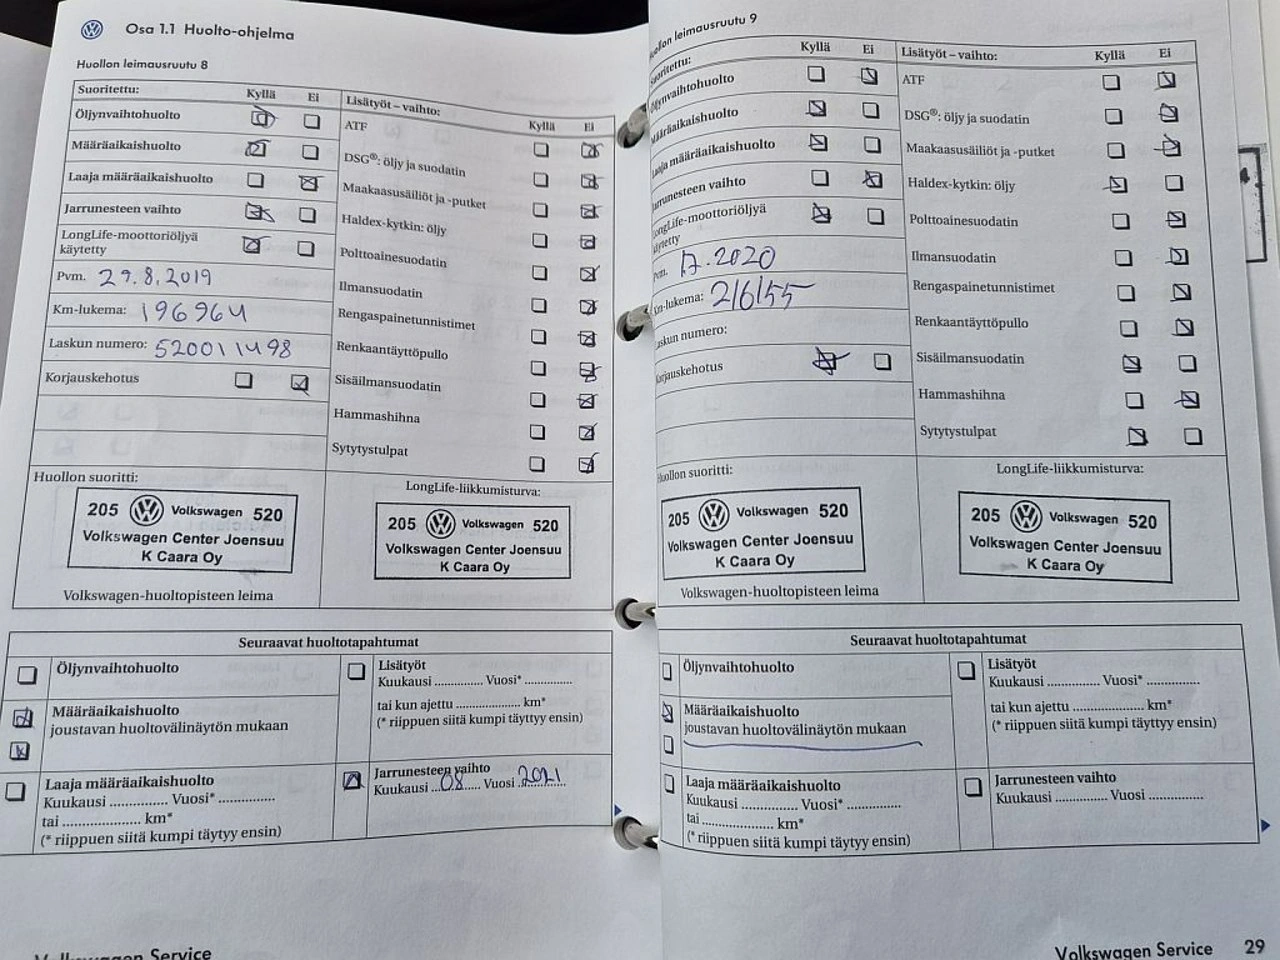 Osa 1.1 Huolto-ohjelma
Huollon leimausruutu 8
Suoritettu: Kyllä Ei
Öljynvaihtohuolto
Määräaikaishuolto
Laaja määräaikaishuolto
Jarrunesteen vaihto
LongLife-moottoriöljyä
käytetty
Pvm. 29.8.2019
Km-lukema: 196964
Laskun numero: 520011498
Korjauskehotus
Lisätyöt – vaihto: Kyllä Ei
ATF
DSG®: öljy ja suodatin
Maakaasusäiliöt ja -putket
Haldex-kytkin: öljy
Polttoainesuodatin
Ilmansuodatin
Rengaspainetunnistimet
Renkaantäyttöpullo
Sisäilmansuodatin
Hammashihna
Sytytystulpat
Huollon suoritti:
205 Volkswagen 520
Volkswagen Center Joensuu
K Caara Oy
Volkswagen-huoltopisteen leima
LongLife-liikkumisturva:
205 Volkswagen 520
Volkswagen Center Joensuu
K Caara Oy
Seuraavat huoltotapahtumat
Öljynvaihtohuolto
Määräaikaishuolto
joustavan huoltovälinäytön mukaan
Laaja määräaikaishuolto
Kuukausi ............... Vuosi* ...............
tai .................... km*
(* riippuen siitä kumpi täytyy ensin)
Lisätyöt
Kuukausi ............. Vuosi* .............
tai kun ajettu .................. km*
(* riippuen siitä kumpi täyttyy ensin)
Jarrunesteen vaihto
Kuukausi ...08... Vuosi 2021
Volkswagen Service
Huollon leimausruutu 9
Suoritettu: Kyllä Ei
Öljynvaihtohuolto
Määräaikaishuolto
Laaja määräaikaishuolto
Jarrunesteen vaihto
LongLife-moottoriöljyä
käytetty
Pvm. 17.2020
Km-lukema: 216155
Laskun numero:
Korjauskehotus
Lisätyöt – vaihto: Kyllä Ei
ATF
DSG®: öljy ja suodatin
Maakaasusäiliöt ja -putket
Haldex-kytkin: öljy
Polttoainesuodatin
Ilmansuodatin
Rengaspainetunnistimet
Renkaantäyttöpullo
Sisäilmansuodatin
Hammashihna
Sytytystulpat
Huollon suoritti:
205 Volkswagen 520
Volkswagen Center Joensuu
K Caara Oy
Volkswagen-huoltopisteen leima
LongLife-liikkumisturva:
205 Volkswagen 520
Volkswagen Center Joensuu
K Caara Oy
Seuraavat huoltotapahtumat
Öljynvaihtohuolto
Määräaikaishuolto
joustavan huoltovälinäytön mukaan
Laaja määräaikaishuolto
Kuukausi ............... Vuosi* ...............
tai .................... km*
(* riippuen siitä kumpi täytyy ensin)
Lisätyöt
Kuukausi ............. Vuosi* .............
tai kun ajettu .................. km*
(* riippuen siitä kumpi täyttyy ensin)
Jarrunesteen vaihto
Kuukausi ............. Vuosi .............
Volkswagen Service 29